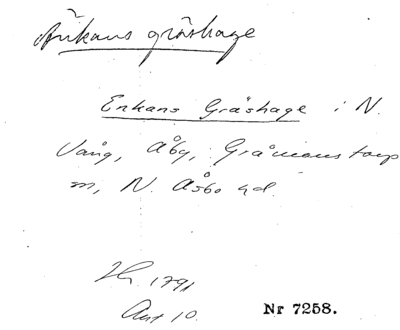 Änkans gräshage
Enkans Gräshage i N.
Vång, Åby, Gråmanstorp
m, N. Åsbo hd.
1791
Nr 7258.